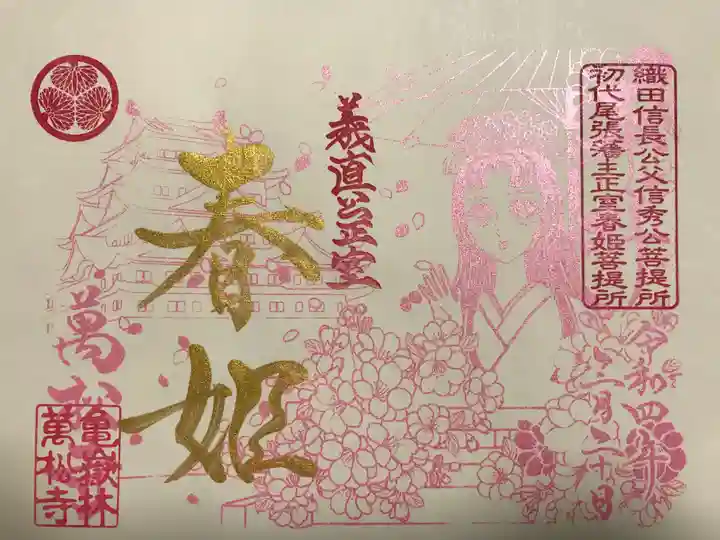 織田信長公父信秀公菩提所
初代尾張藩主正室春姫菩提所
令和四年
二月二十日
義直公正室
春姫
萬松寺
亀嶽林
萬松寺